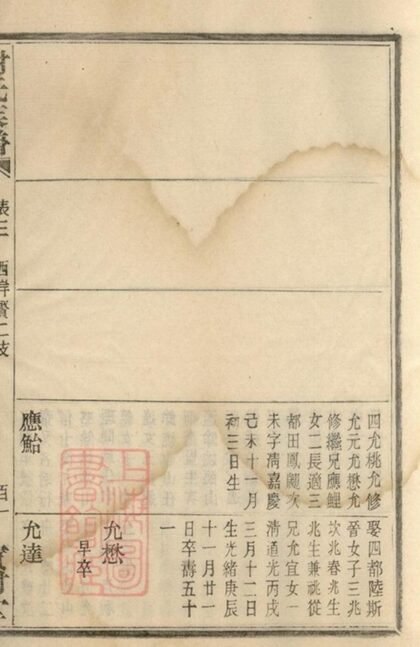 四允桃允修
允元允懋允
修繼兄應鯉
女二長適三
都田鳳颺次
未字清嘉慶
己未十一月
初三日生
應鮐
娶四都陸斯
晉女子三兆
坎兆春兆生
兆生兼祧從
兄允宜女一
清道光丙戌
三月十二日
生光緒庚辰
十一月廿一
日卒壽五十
一
允懋
早卒
允達
上海圖
書館藏
表三
西岸賢二支